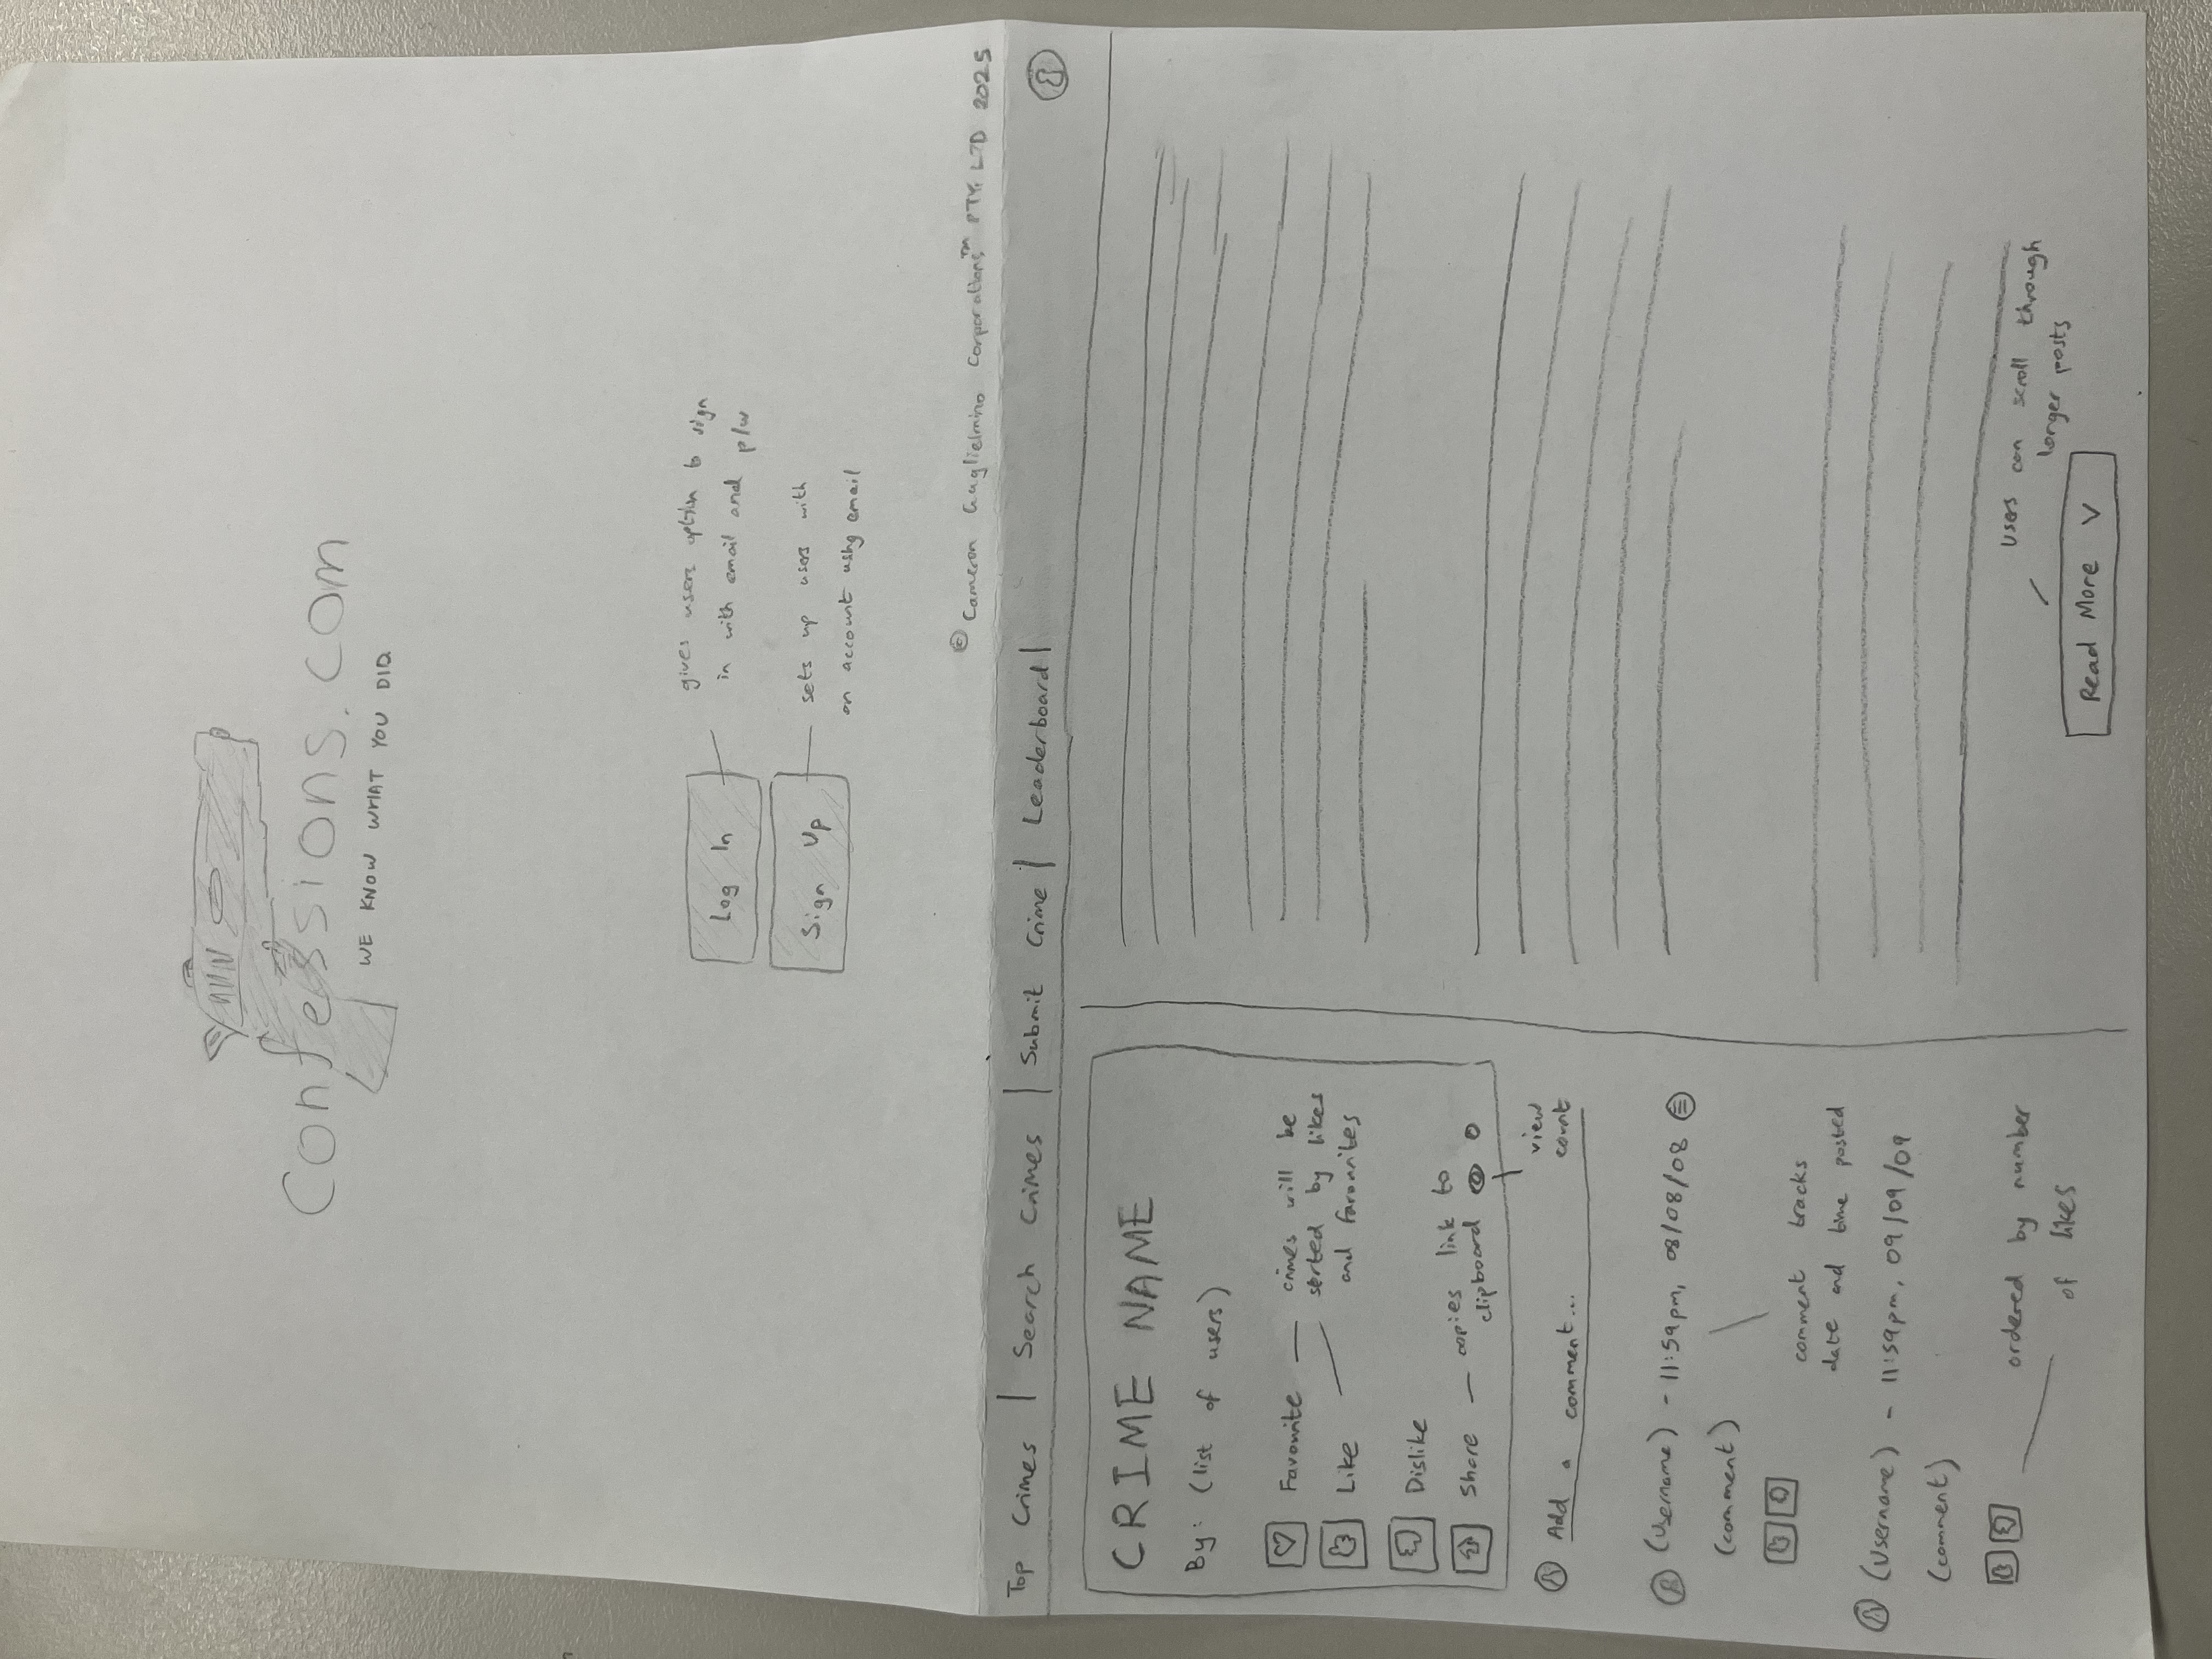 Confessions.com
WE KNOW WHAT YOU DID
Log In
gives users option to sign
in with email and p/w
Sign Up
sets up users with
an account using email
© Cameron Guglielmino Corporations™ PTY. LTD 2025
Top Crimes | Search Crimes | Submit Crime | Leaderboard |
CRIME NAME
By: (list of users)
Favourite
crimes will be
sorted by likes
and favourites
Like
Dislike
Share
copies link to
clipboard
view
count
Add a comment...
(Username) - 11:59pm, 08/08/08
(comment)
comment tracks
date and time posted
(Username) - 11:59pm, 09/09/09
(comment)
ordered by number
of likes
Users can scroll through
longer posts
Read More V